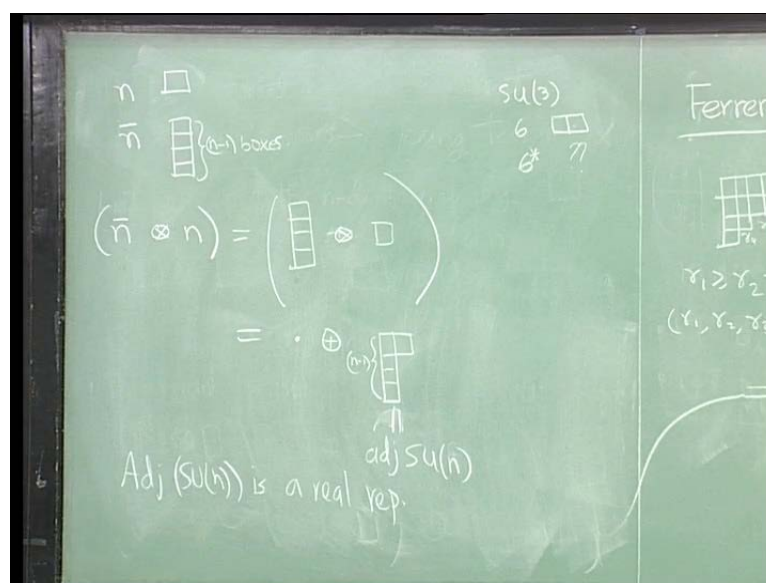 n □
n̄ (n-1) boxes
(n̄ ⊗ n) = ( ⊗ □ )
= · ⊕ (n-1)
||
adj SU(n)
Adj (SU(n)) is a real rep.
SU(3)
6
6* ??
Ferrer
r₁ ≥ r₂
(r₁, r₂, r₃